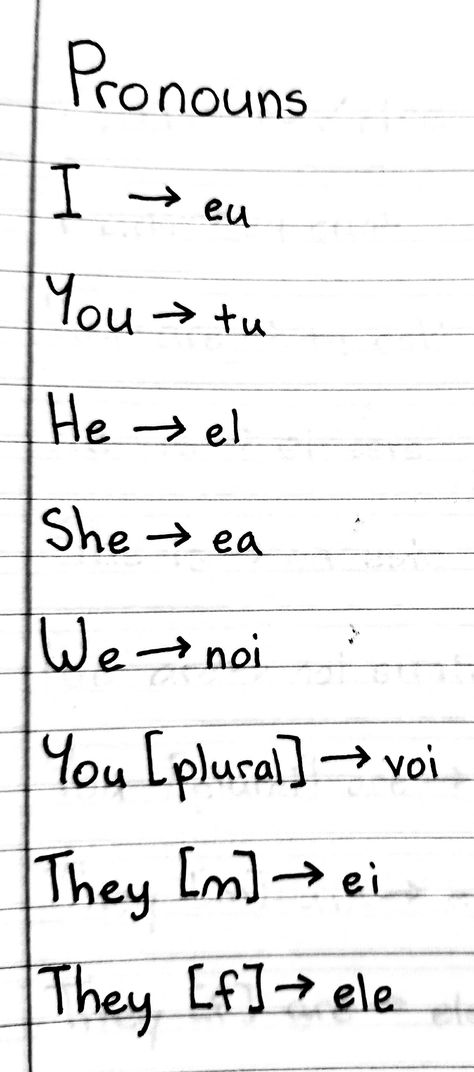 Pronouns
I → eu
You → tu
He → el
She → ea
We → noi
You [plural] → voi
They [m] → ei
They [f] → ele